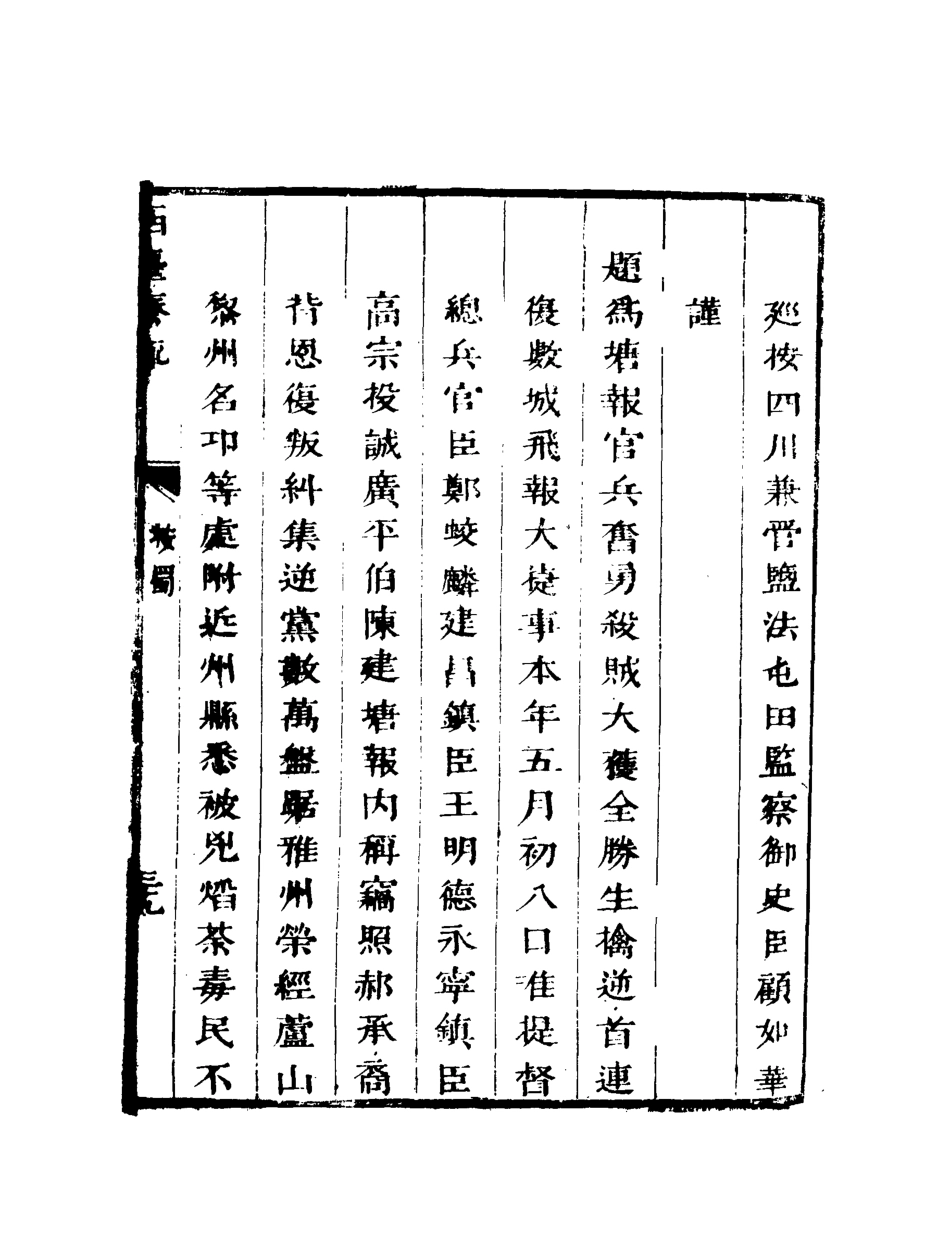 廵按四川兼管鹽法屯田監察御史臣顧如華
謹
題爲塘報官兵奮勇殺賊大獲全勝生擒逆首連
復數城飛報大捷事本年五月初八日准提督
總兵官臣鄭蛟麟建昌鎮臣王明德永寧鎮臣
高宗投誠廣平伯陳建塘報内稱竊照郝承裔
背恩復叛糾集逆黨數萬盤踞雅州榮經蘆山
黎州名卭等處附近州縣悉被兇焰荼毒民不
西臺奏疏
按蜀
三九